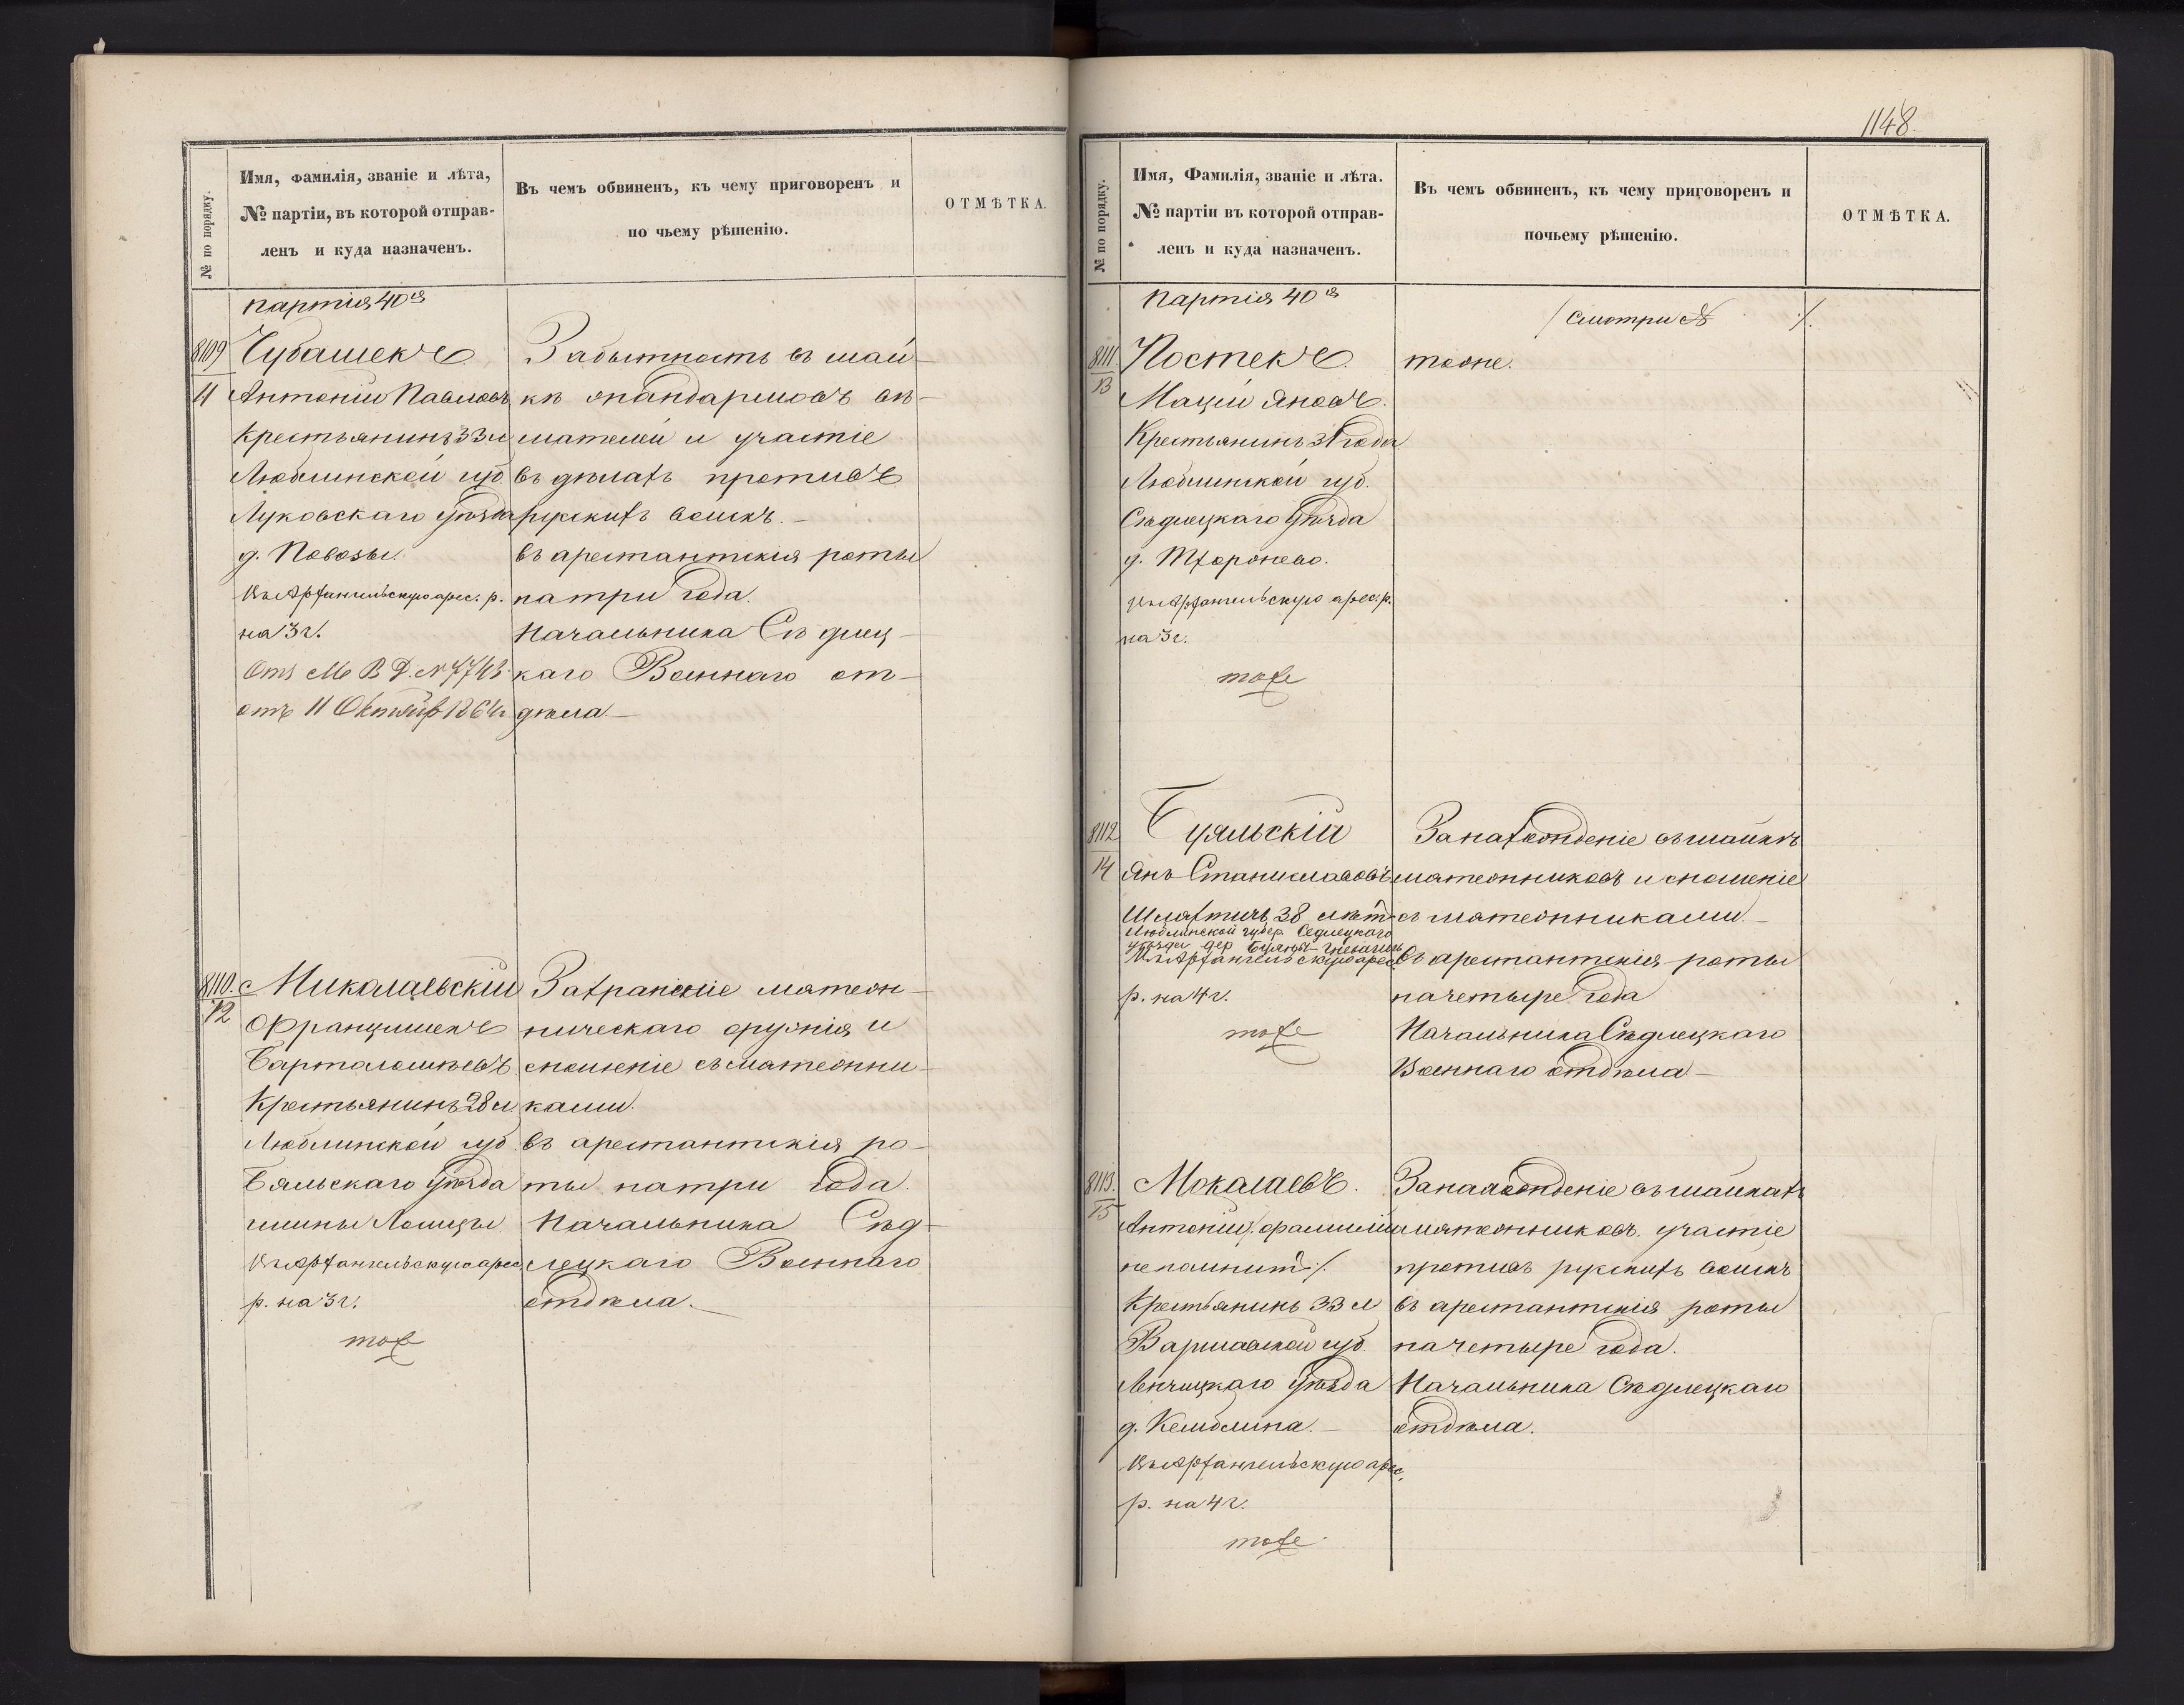 1148.
№ по порядку.
Имя, фамилія, званіе и лѣта,
№ партіи, въ которой отправ-
ленъ и куда назначенъ.
Въ чемъ обвиненъ, къ чему приговоренъ и
по чьему рѣшенію.
ОТМѢТКА.
партія 40я
8109
11
Чубашекъ
Антоній Павловъ
Крестьянинъ 33 л
Люблинской губ.
Луковскаго уѣзда
д. Повозы.
Въ Архангельскую арес. р.
на 3 г.
Отз М В Д. №
отъ 11 Октября 1864 г
За бытность въ шай-
кѣ жандармовъ вѣ-
шателей и участіе
въ дѣлахъ противъ
рускихъ войскъ.—
въ арестантскія роты
на три года.
Начальника Сѣдлец-
каго Военнаго от-
дѣла.—
8110.
12
Миколаевскій
Францишекъ
Бартоломѣевъ
Крестьянинъ 28 л
Люблинской губ
Бяльскаго уѣзда
гмины Ломазы.
Въ Архангельскую арес.
р. на 3 г.
тоже
За храненіе мятеж-
ническаго оружія и
сношеніе съ мятежни-
ками.
въ арестантскія ро-
ты на три года.
Начальника Сѣд-
лецкаго Военнаго
отдѣла.—
№ по порядку.
Имя, Фамилія, званіе и лѣта.
№ партіи въ которой отправ-
ленъ и куда назначенъ.
Въ чемъ обвиненъ, къ чему приговоренъ и
почьему рѣшенію.
ОТМѢТКА.
Партія 40я
/ Смотри № /.
8111.
13
Постекъ
Мацѣй Яновъ.
Крестьянинъ 31 года
Люблинской губ.
Сѣдлецкаго уѣзда
д.
Въ Архангельскую арес. р.
на 3 г.
тоже
тоже.
8112
14
Буяльскій
Янъ Станиславовъ
Шляхтичъ 38 лѣтъ
Люблинской губер. Седлецкаго
уѣзда дер Буялы-Гневошъ
Въ Архангельскую арес.
р. на 4 г.
тоже
За нахожденіе въ шайкѣ
мятежниковъ и сношеніе
съ мятежниками.—
Въ арестантскія роты
на четыре года
Начальника Сѣдлецкаго
Военнаго отдѣла—
8113.
15
Мокалаевъ.
Антоній /. фамиліи
непомнитъ /.
Крестьянинъ 33 л
Варшавской губ.
Ленчицкаго уѣзда
д.
Въ Архангельскую арес.
р. на 4 г.
тоже.
За нахожденіе въ шайкахъ
мятежниковъ, участіе
противъ рускихъ войскъ
въ арестантскія роты
на четыре года.
Начальника Сѣдлецкаго
отдѣла.